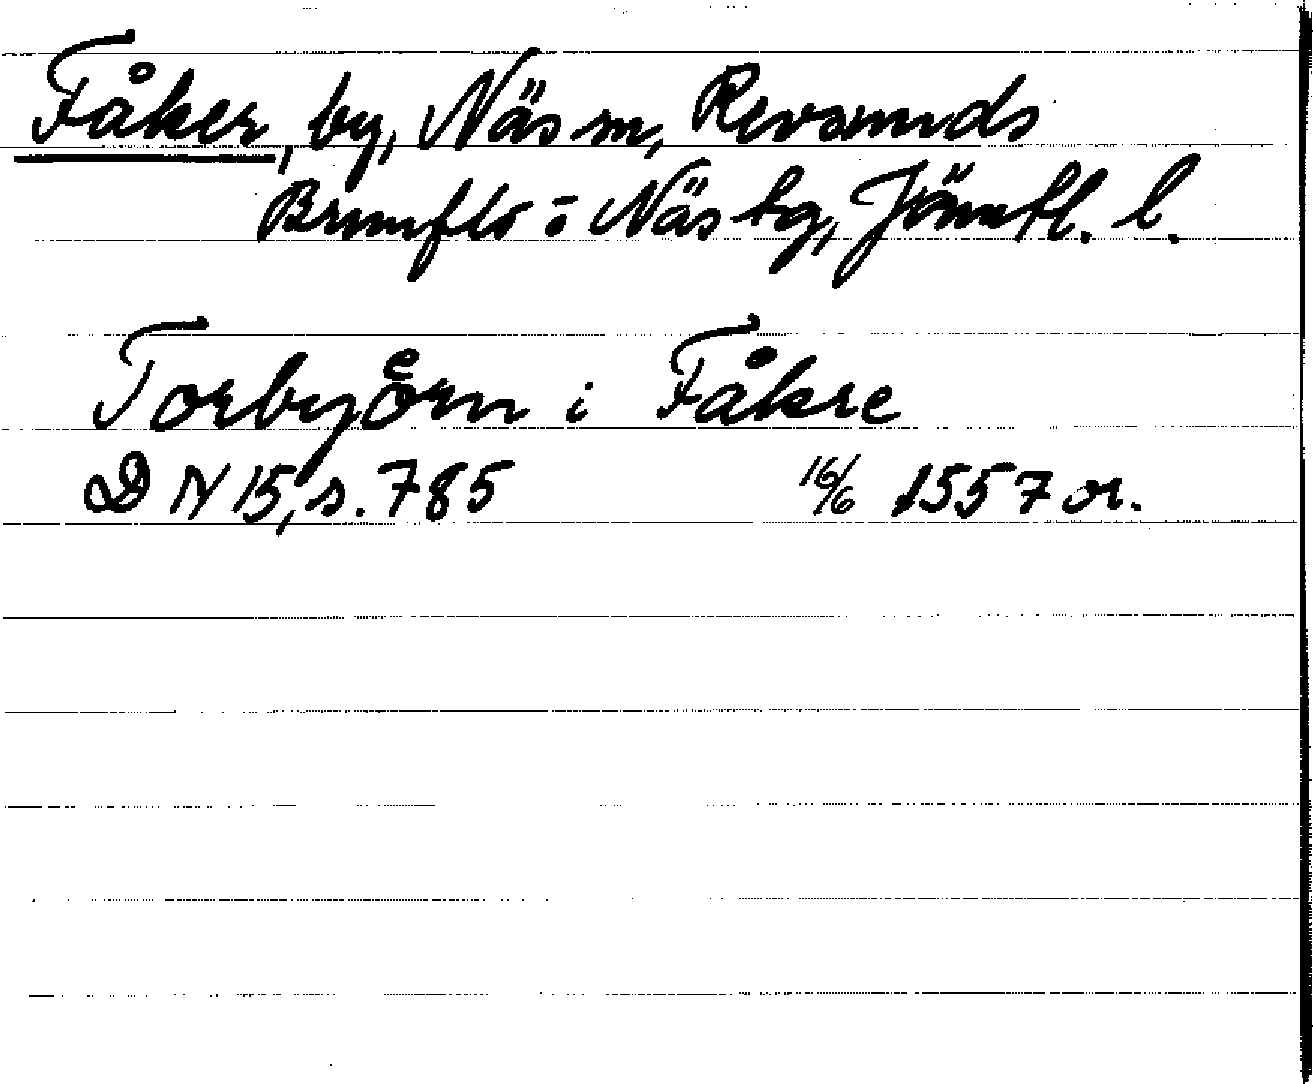 Fåker, by, Näs sn, Revsunds
Brunflo o Näs tg, Jämtl. l.
Torbyoͤrn i Fåkre
DN 15, s. 785 16/6 1557 or.